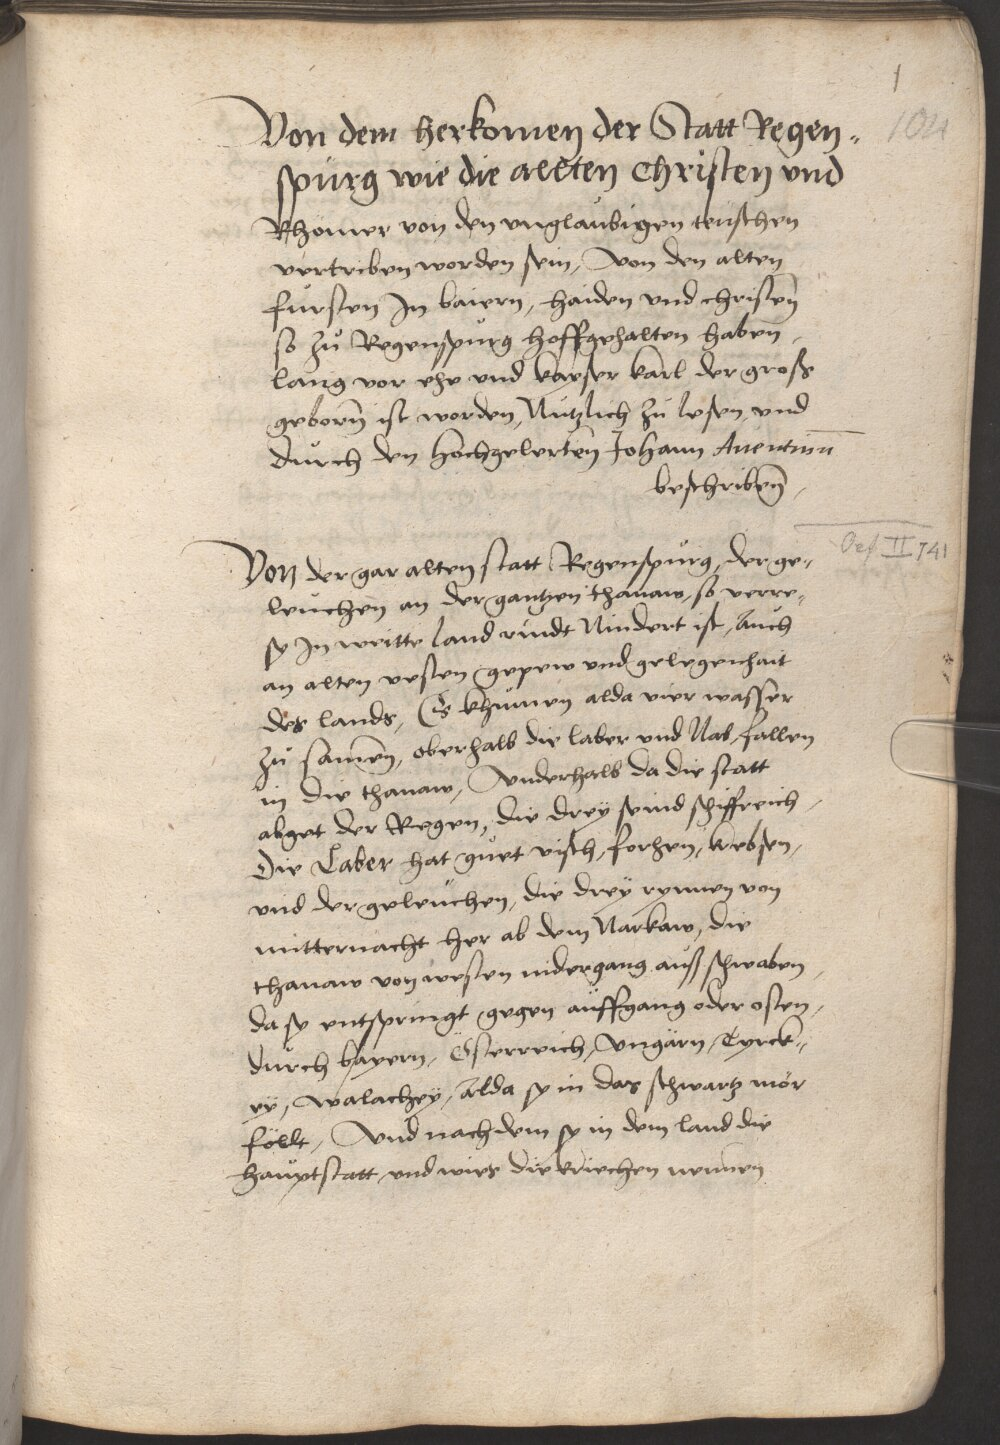 1
104
Von dem herkomen der Statt Regen-
spürg wie die allten Christen vnd
Rhömer von den vnglaubigen teutschen
vertriben worden sein, Von den alten
fursten In baiern, haiden vnd christen
so zu Regenspurg hoffgehalten haben,
lang vor ehe vnd kayser karl der gross
geborn ist worden, Nutzlich zu lesen vnd
durch den hochgelerten Johann Auentinū
beschriben,
Oef. II 741
Von der gar alten statt Regenspurg, der ge-
leuchen an der gantzen thanaw, so verre
sy In weitte land rindt Nindert ist, Auch
an alten vesten gepew vnd gelegenhait
des lands, Es khumen alda vier wasser
zu samen, oberhalb die laber vnd Nab, fallen
in die thanaw, Vnderhalb da die statt
abget der Regen, die drey seind schiffreich,
Die Laber hat guet visch, forhen, krebsen,
vnd der geleuchen, die drey rynnen von
mitternacht her ab dem Narkaw, die
thanaw von westen nidergang auss schwaben,
da sy entspringt gegen auffgang oder osten,
durch bayern, Österreich, Vngarn, Tyrck-
ey, Walachey, Alda sy in das schwartz mör
föllt, Vnd nach dem sy in dem land die
hauptstatt vnd wie es die kriechen nennen